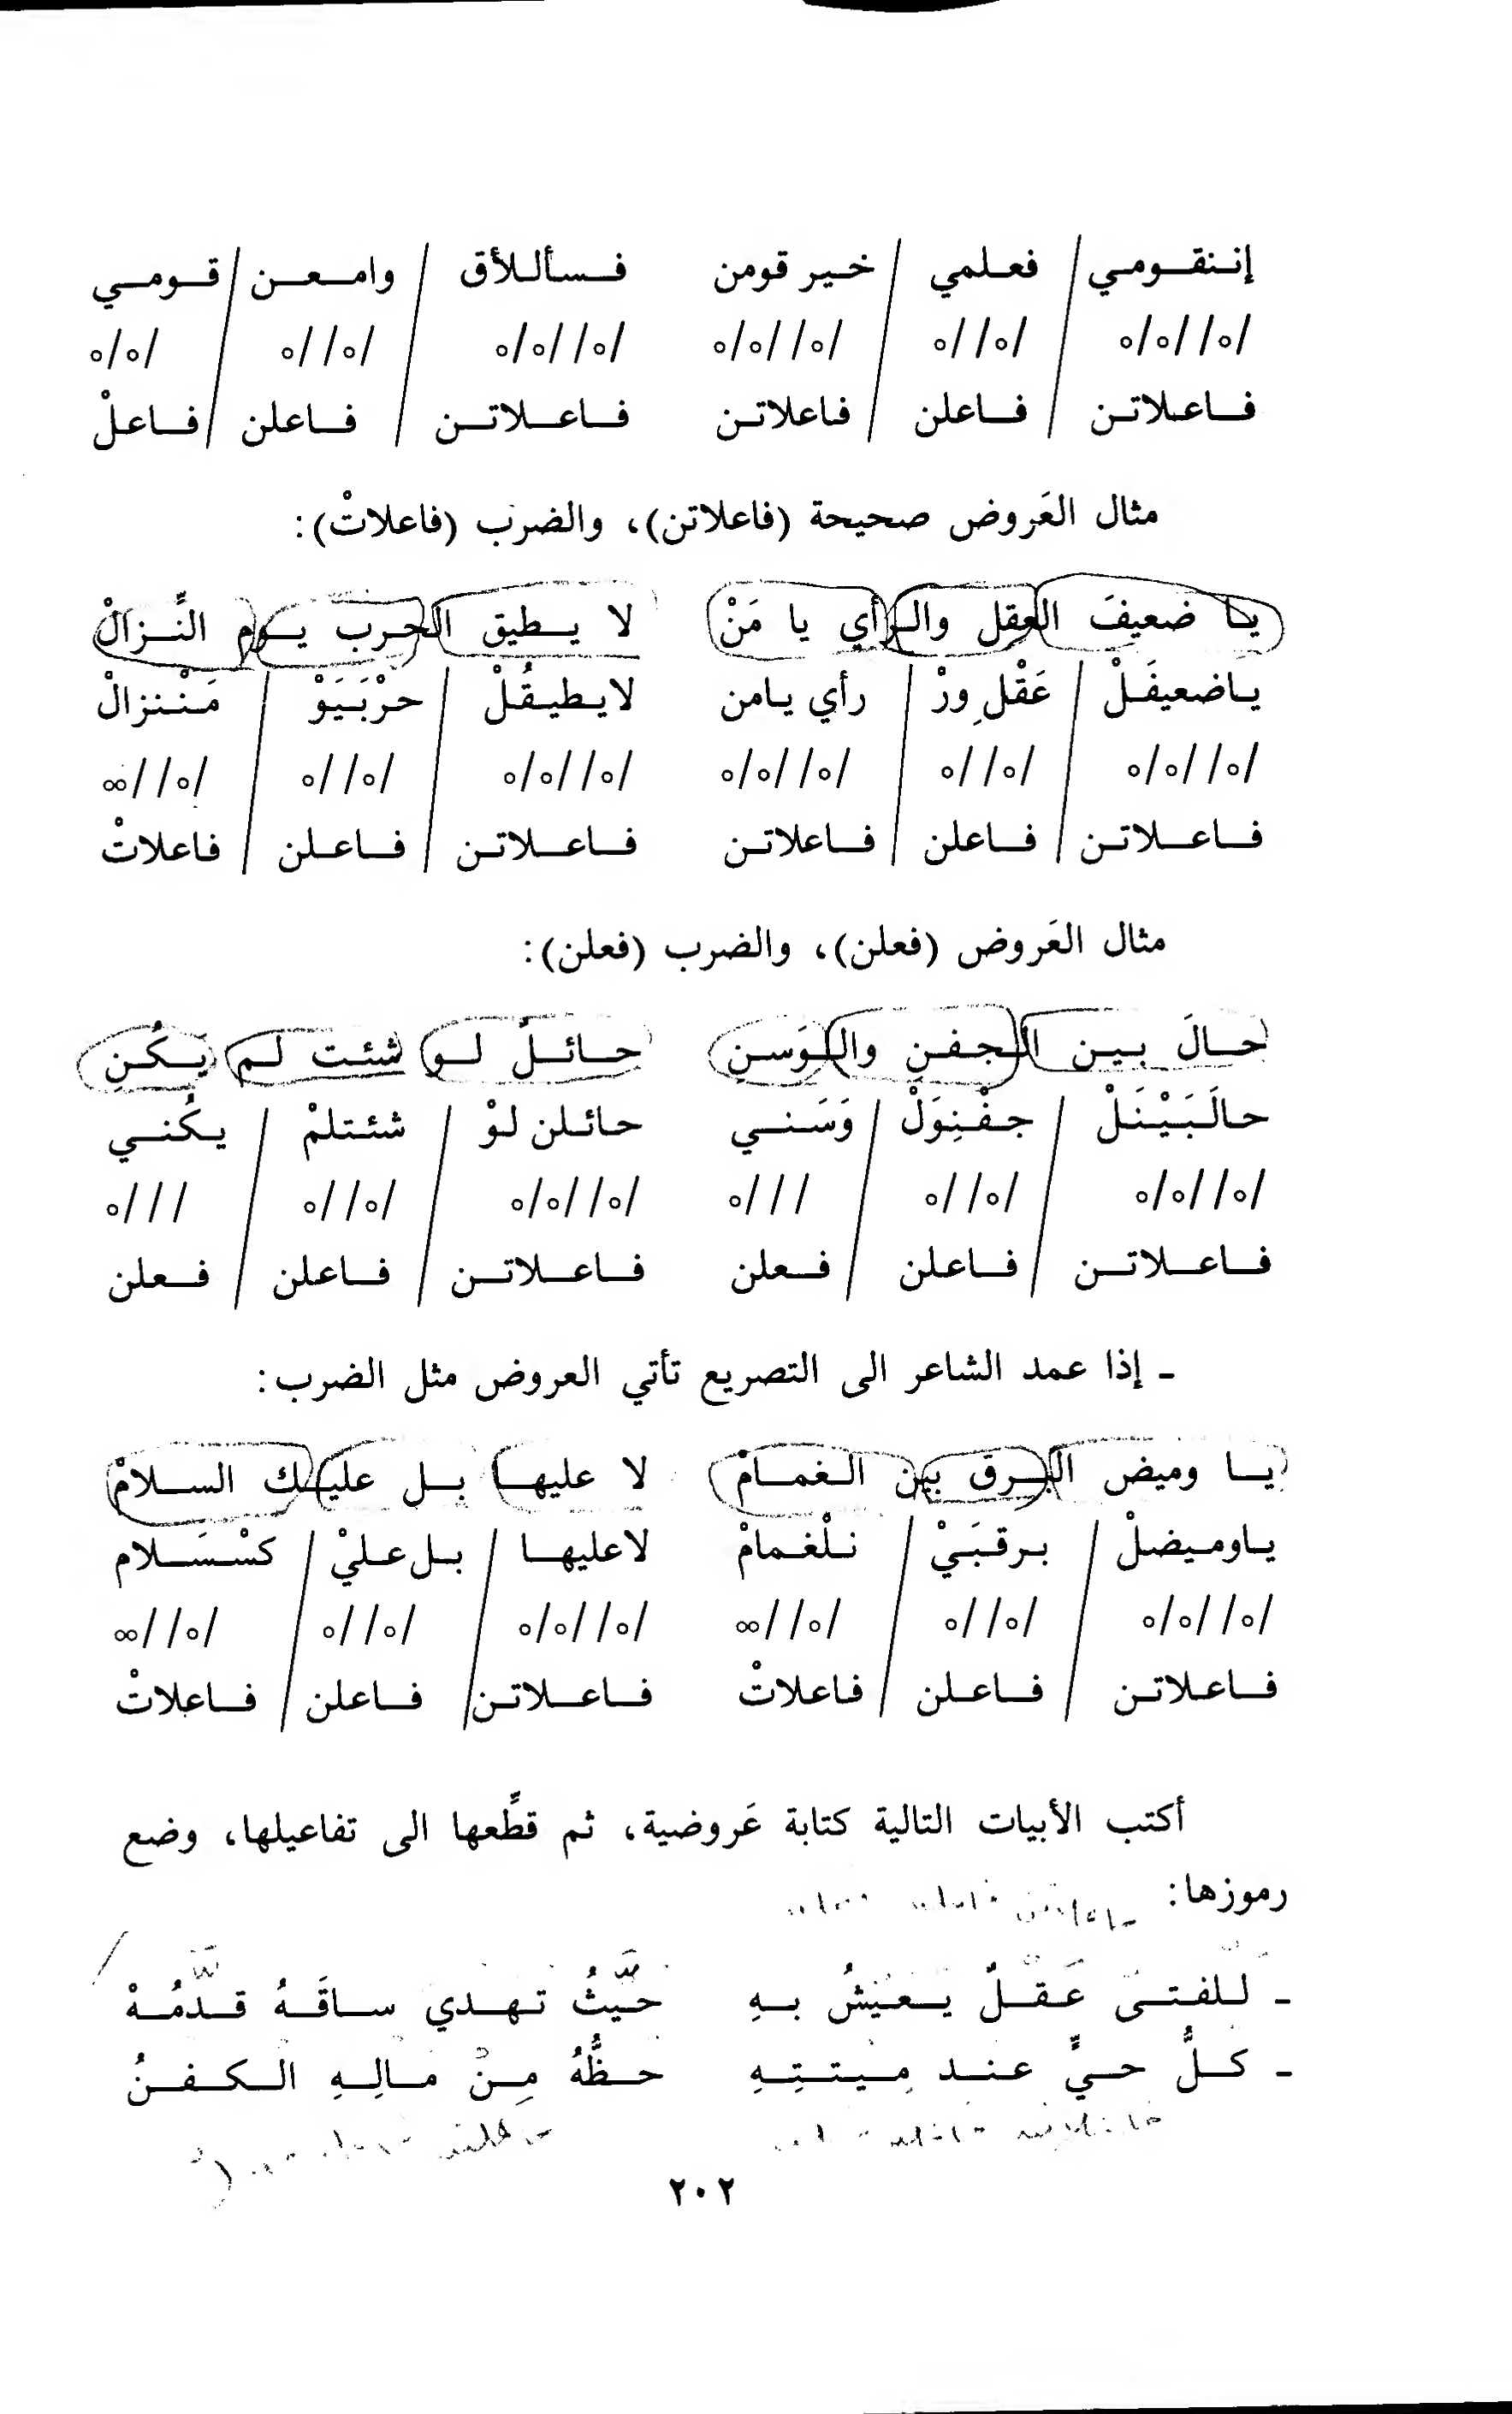 إننقومي / فعلمي / خير قومن فسأللأق / وامعن / قومي
/ه//ه/ه / /ه//ه / /ه//ه/ه /ه//ه/ه / /ه//ه / /ه/ه
فاعلاتن / فاعلن / فاعلاتن فاعلاتن / فاعلن / فاعلْ
مثال العَروض صحيحة (فاعلاتن)، والضرب (فاعلاتْ):
يا ضعيفَ العقل والرأي يا مَنْ لا يطيق الحرب يوم النِّزالْ
ياضعيفَلْ / عَقْلِ ورْ / رأي يامن لايطيقُلْ / حرْبَيَوْ / مَنْنزالْ
/ه//ه/ه / /ه//ه / /ه//ه/ه /ه//ه/ه / /ه//ه / /ه//هه
فاعلاتن / فاعلن / فاعلاتن فاعلاتن / فاعلن / فاعلاتْ
مثال العَروض (فعلن)، والضرب (فعلن):
حالَ بين الجفنِ والوَسنِ حائلٌ لو شئت لم يَكُنِ
حالَبَيْنَلْ / جفْنِوَلْ / وَسَني حائلن لوْ / شئتلمْ / يكُني
/ه//ه/ه / /ه//ه / ///ه /ه//ه/ه / /ه//ه / ///ه
فاعلاتن / فاعلن / فعلن فاعلاتن / فاعلن / فعلن
ـ إذا عمد الشاعر الى التصريع تأتي العروض مثل الضرب:
يا وميض البرق بين الغمامْ لا عليها بل عليك السلامْ
ياوميضلْ / برقبَيْ / نلْغمامْ لاعليها / بل عليْ / كسْسَلام
/ه//ه/ه / /ه//ه / /ه//هه /ه//ه/ه / /ه//ه / /ه//هه
فاعلاتن / فاعلن / فاعلاتْ فاعلاتن / فاعلن / فاعلاتْ
أكتب الأبيات التالية كتابة عَروضية، ثم قطِّعها الى تفاعيلها، وضع
رموزها:
ـ للفتى عَقلٌ يعيشُ بهِ حيثُ تهدي ساقَهُ قدَمُهْ
ـ كلُّ حيٍّ عند مِيتتِهِ حظُّهُ مِنْ مالِهِ الكفنُ
٢٠٢